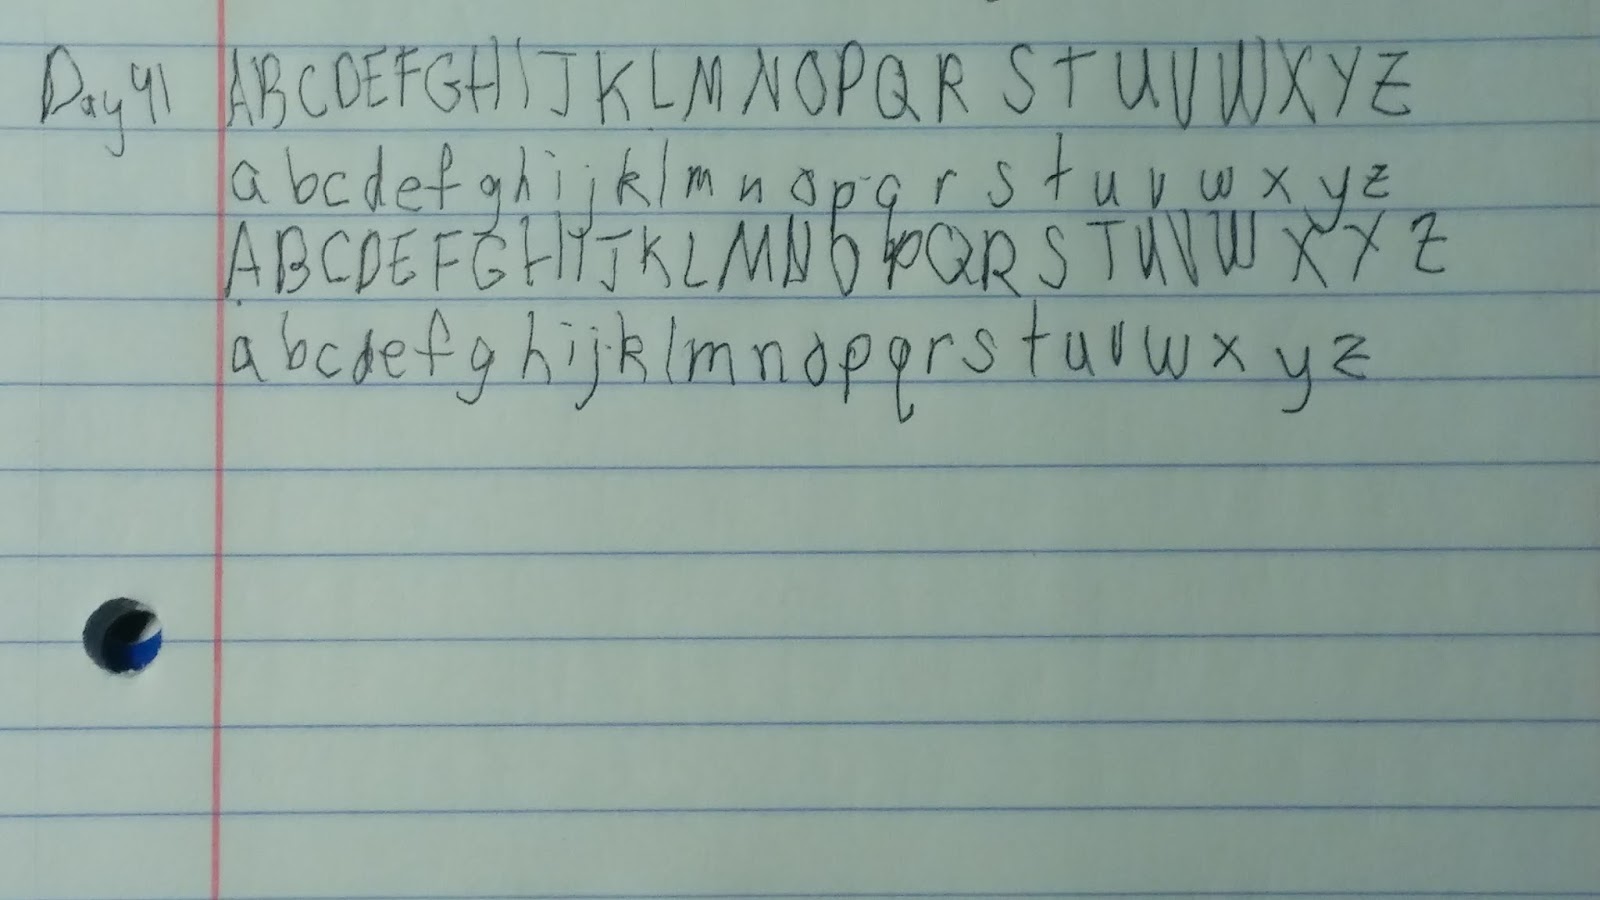 Day 41 ABCDEFGHIJKLMNOPQRSTUVWXYZ
abcdefghijklmnopqrstuvwxyz
ABCDEFGHIJKLMNOPQRSTUVWXYZ
abcdefghijklmnopqrstuvwxyz